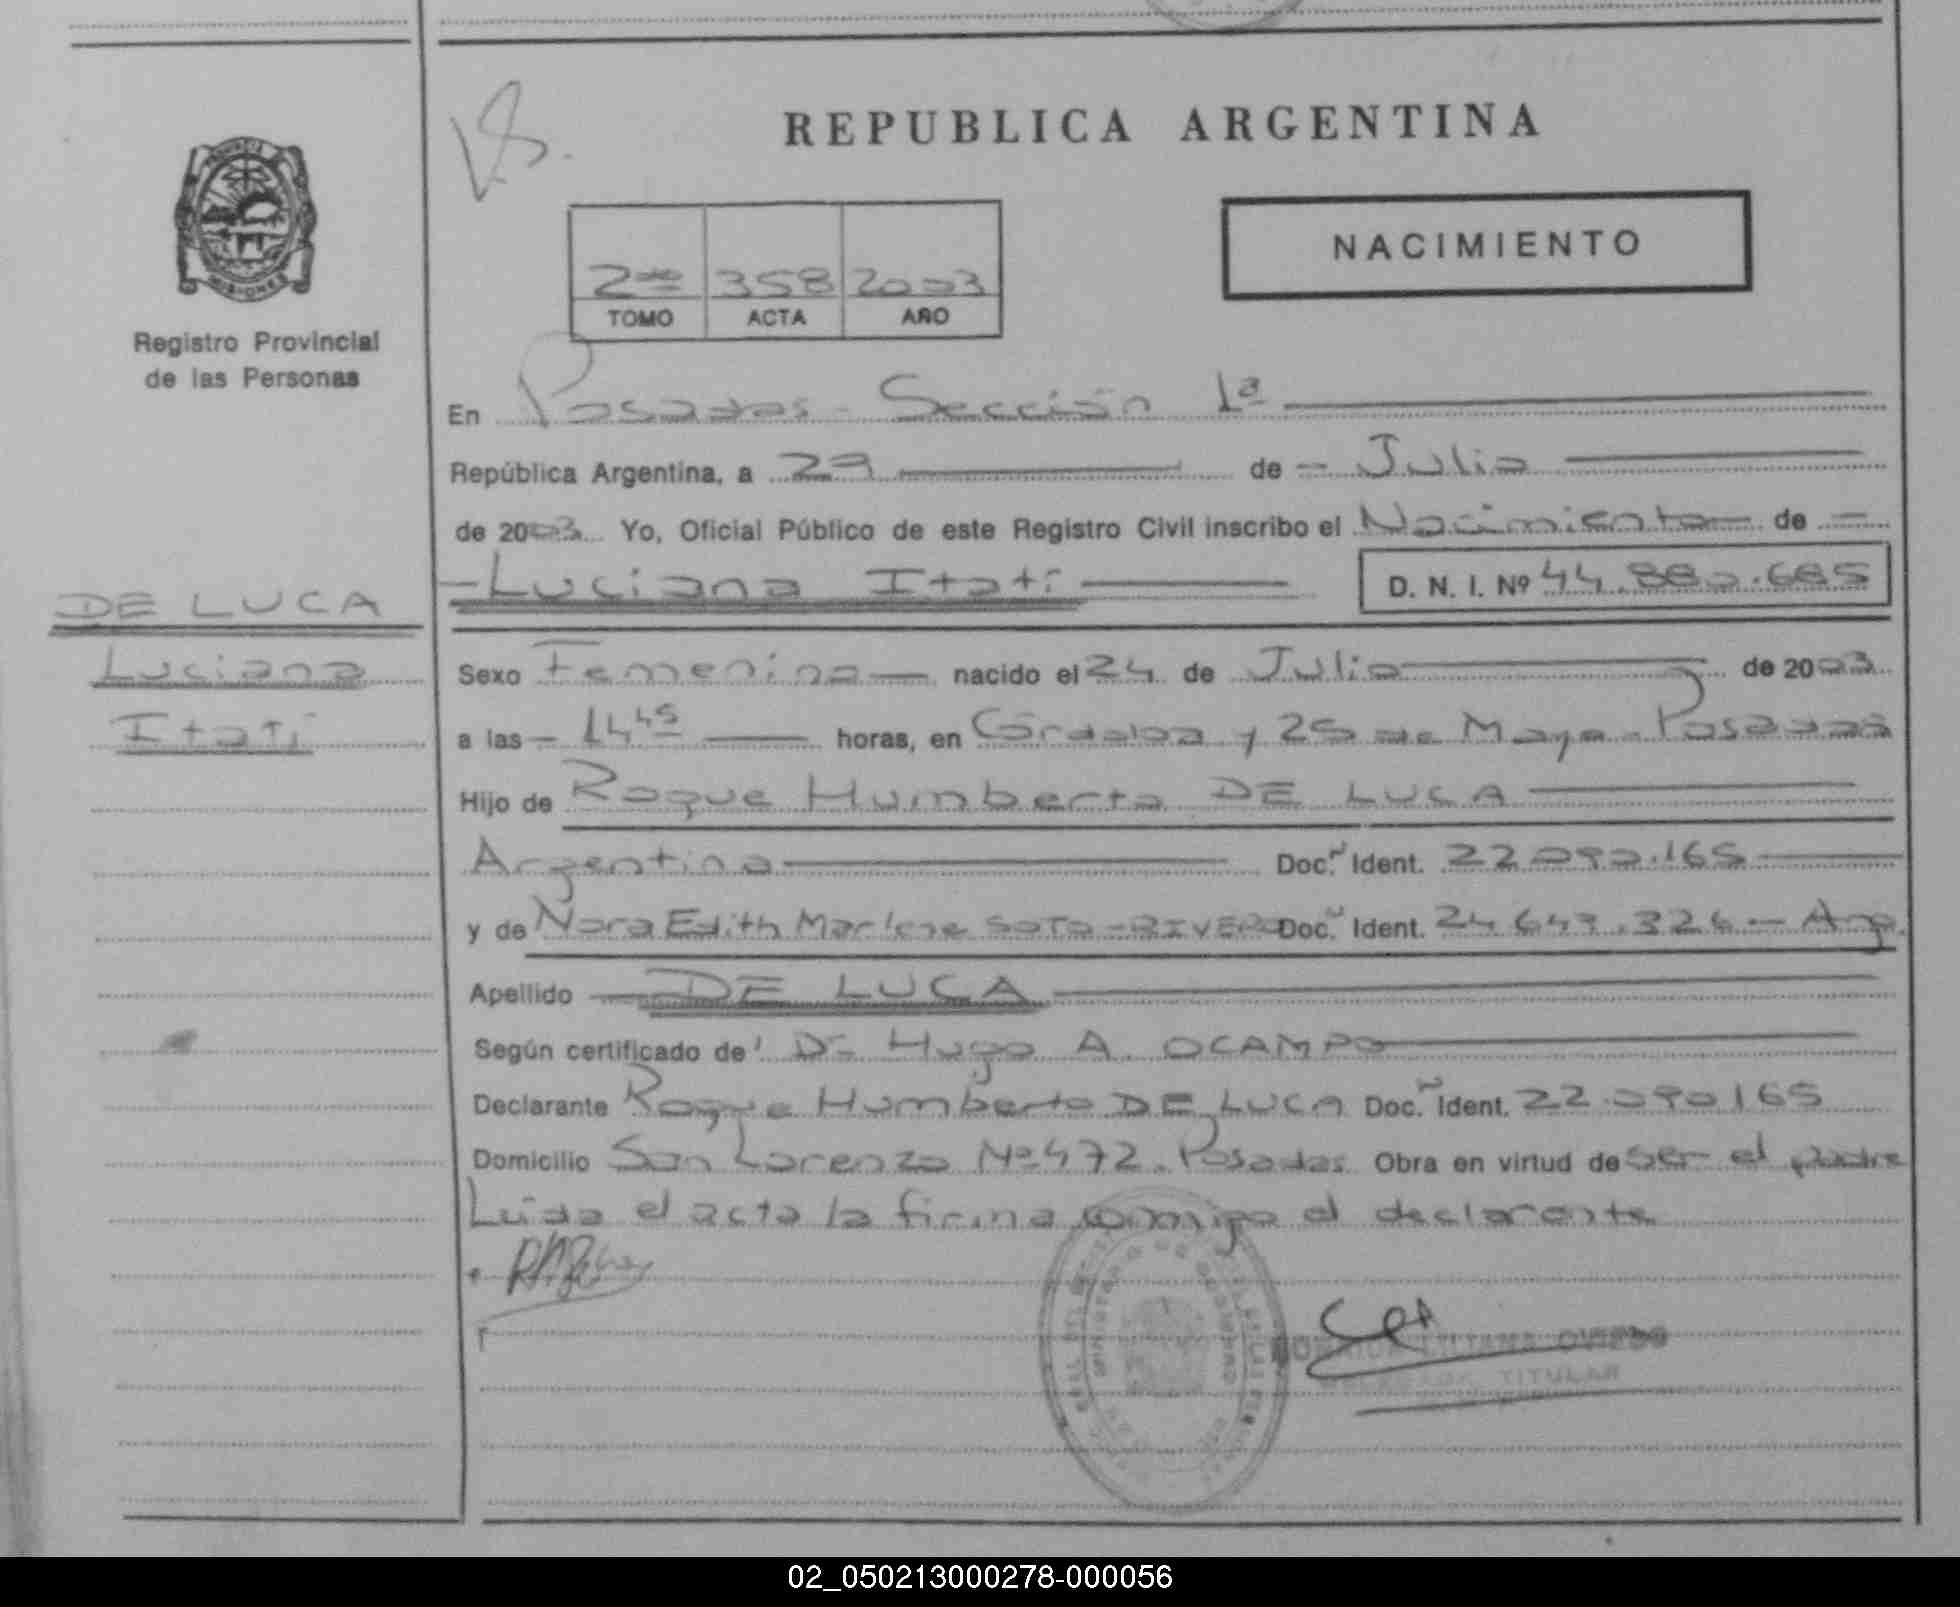 REPUBLICA ARGENTINA
NACIMIENTO
2do 358 2003
TOMO ACTA AÑO
PROVINCIA
MISIONES
Registro Provincial
de las Personas
En Posadas - Sección 1ª
República Argentina, a 29 de - Julio
de 2003 Yo, Oficial Público de este Registro Civil inscribo el Nacimiento de -
- Luciana Itatí D. N. I. Nº 44.880.685
DE LUCA
Luciana
Itatí
Sexo Femenino nacido el 24 de Julio de 2003
a las - 14 45 horas, en Córdoba y 25 de Mayo - Posadas
Hijo de Roque Humberto DE LUCA
Argentino Doc. Ident. 22.090.165
y de Nora Edith Marlene SOTO - RIVERO Doc. Ident. 24.647.326 - Arg.
Apellido DE LUCA
Según certificado de Dr Hugo A. OCAMPO
Declarante Roque Humberto DE LUCA Doc. Ident. 22.090.165
Domicilio San Lorenzo Nº 472. Posadas Obra en virtud de ser el padre
Leida el acta la firma conmigo el declarante
LILIANA OVIEDO
TITULAR
02_050213000278-000056